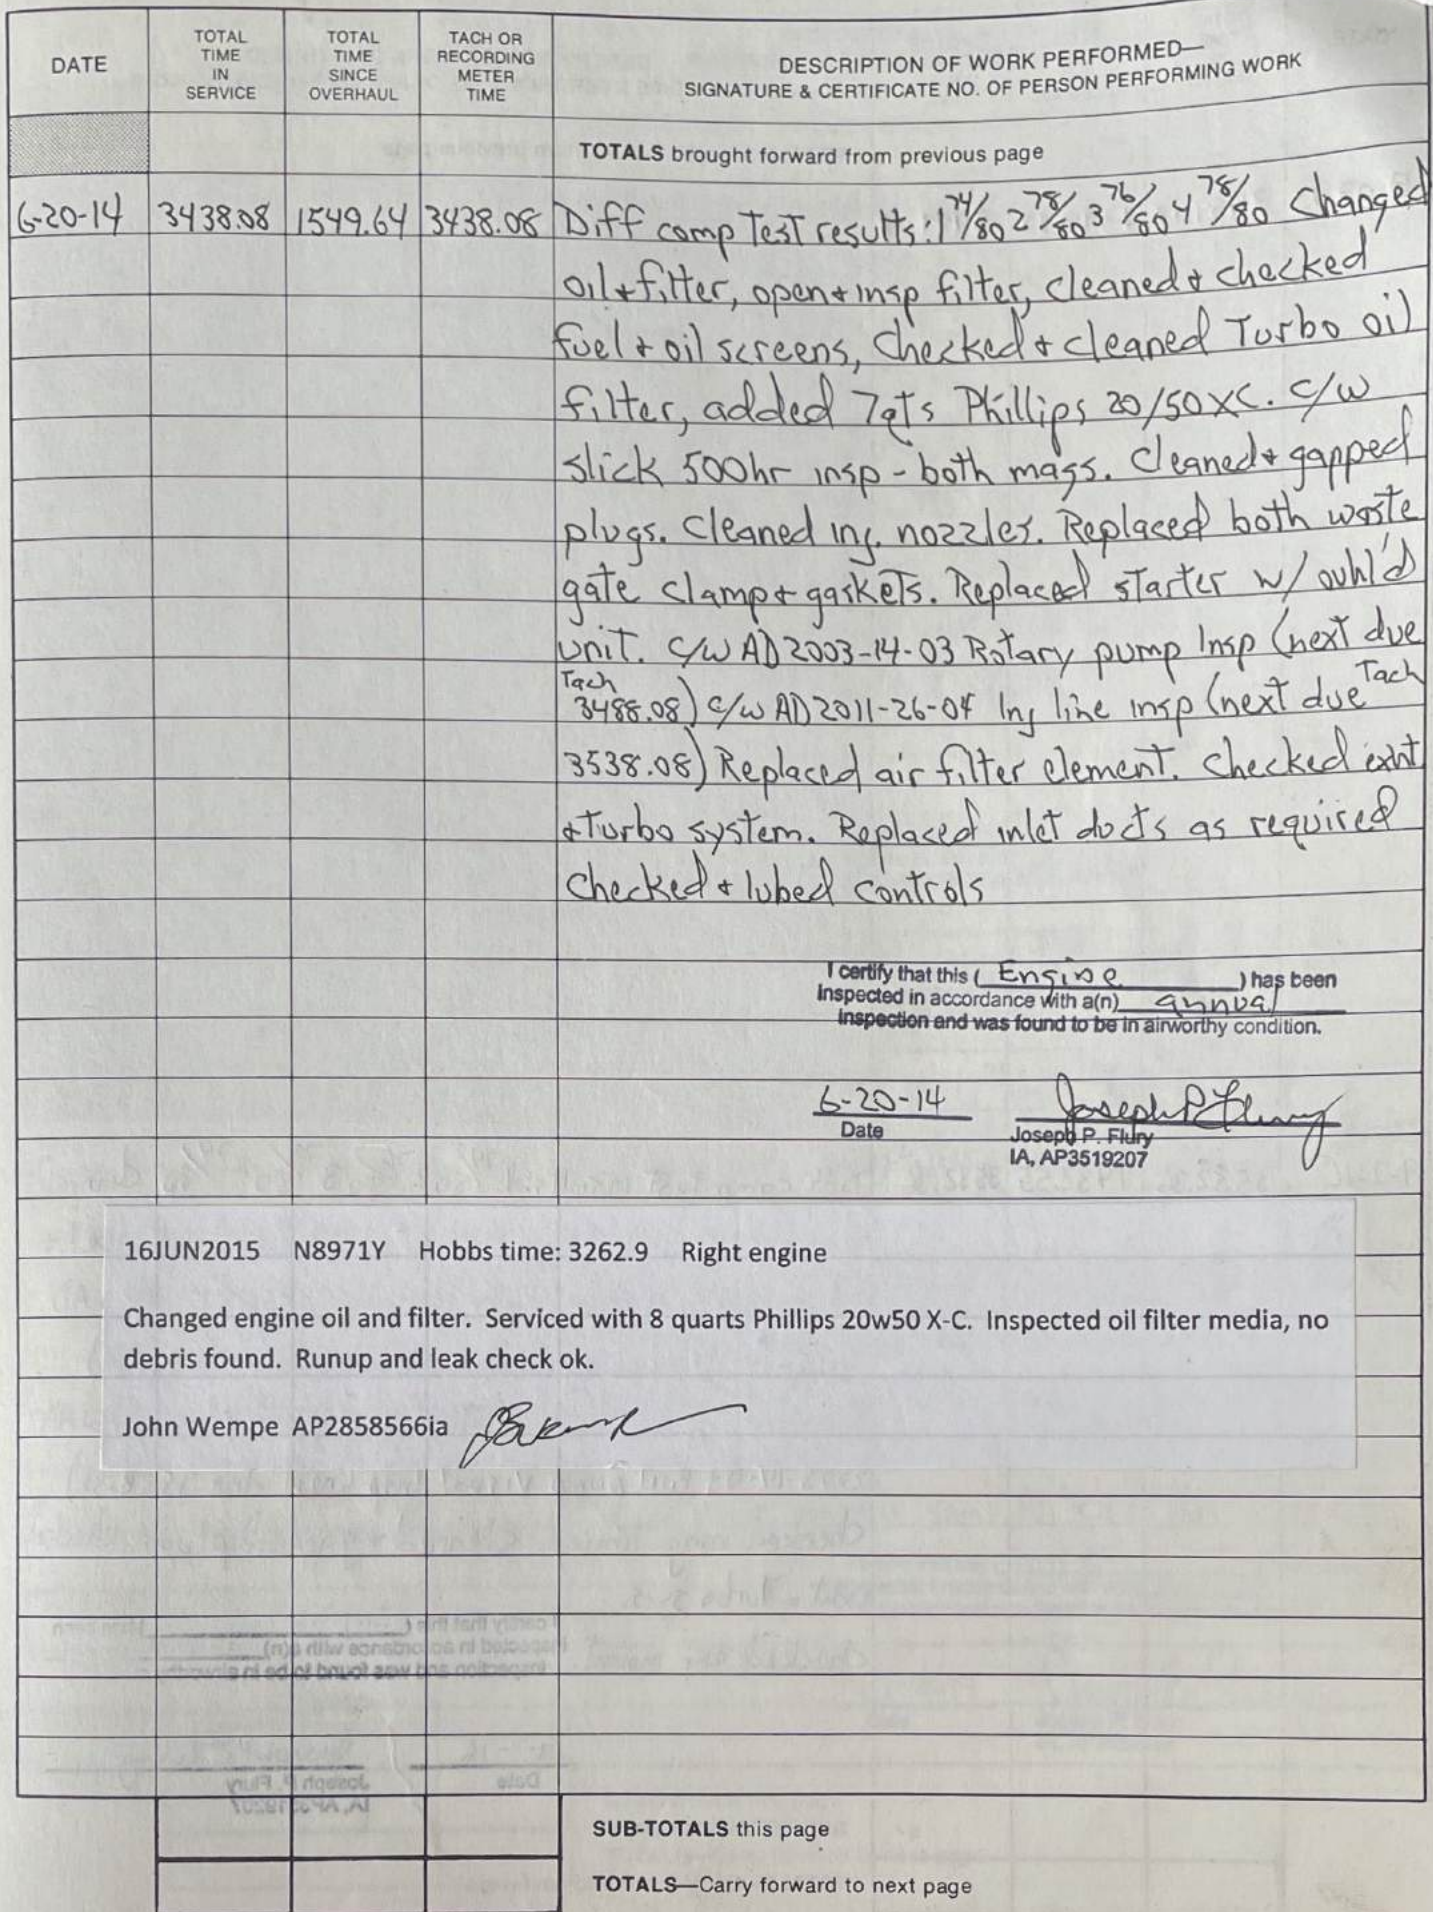 DATE
TOTAL TIME IN SERVICE
TOTAL TIME SINCE OVERHAUL
TACH OR RECORDING METER TIME
DESCRIPTION OF WORK PERFORMED—
SIGNATURE & CERTIFICATE NO. OF PERSON PERFORMING WORK
TOTALS brought forward from previous page
6-20-14 3438.08 1549.64 3438.08 Diff comp Test results: 1 74/80 2 78/80 3 76/80 4 78/80 Changed
oil + filter, open + insp filter, cleaned + checked
fuel + oil screens, Checked + cleaned Turbo oil
filter, added 7qts Phillips 20/50 XC. C/W
slick 500hr insp - both mags. Cleaned + gapped
plugs. Cleaned inj. nozzles. Replaced both waste
gate clamp + gaskets. Replaced starter w/ ovhl'd
unit. C/W AD 2003-14-03 Rotary pump Insp (next due
Tach 3488.08) C/W AD 2011-26-04 Inj line insp (next due Tach
3538.08) Replaced air filter element. Checked exht
+ Turbo system. Replaced inlet ducts as required
Checked + lubed controls
I certify that this ( Engine ) has been
inspected in accordance with a(n) annual
inspection and was found to be in airworthy condition.
6-20-14 Joseph P. Flury
Date Joseph P. Flury
IA, AP3519207
16JUN2015 N8971Y Hobbs time: 3262.9 Right engine
Changed engine oil and filter. Serviced with 8 quarts Phillips 20w50 X-C. Inspected oil filter media, no
debris found. Runup and leak check ok.
John Wempe AP2858566ia
SUB-TOTALS this page
TOTALS—Carry forward to next page